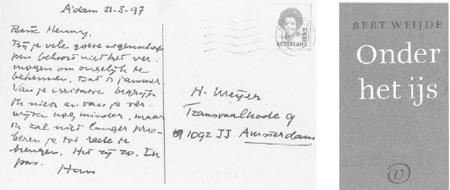 A'dam 31-3-97
Beste Henny,
Bij je vele goede eigenschap-
pen behoort niet het ver-
mogen om ongelijk te
bekennen. Dat is jammer.
Van je irritatie begrijp
ik niets en van je ver-
wijten nog minder, maar
ik zal niet langer pro-
beren je tot rede te
brengen. Het zij zo. En
pas.
Hans
NEDERLAND
H. Weijer
Transvaalkade 9
1092 JJ Amsterdam
BERT WEIJDE
Onder
het ijs